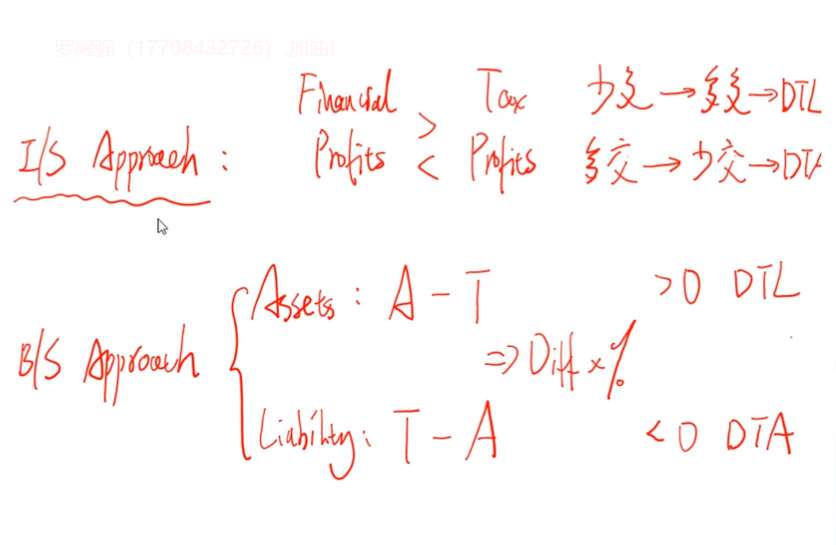 (17708432726)
Financial Tax 少交→多交→DTL
I/S Approach: > <
Profits Profits 多交→少交→DTA
Assets: A - T >0 DTL
B/S Approach => Diff × %
Liability: T - A <0 DTA